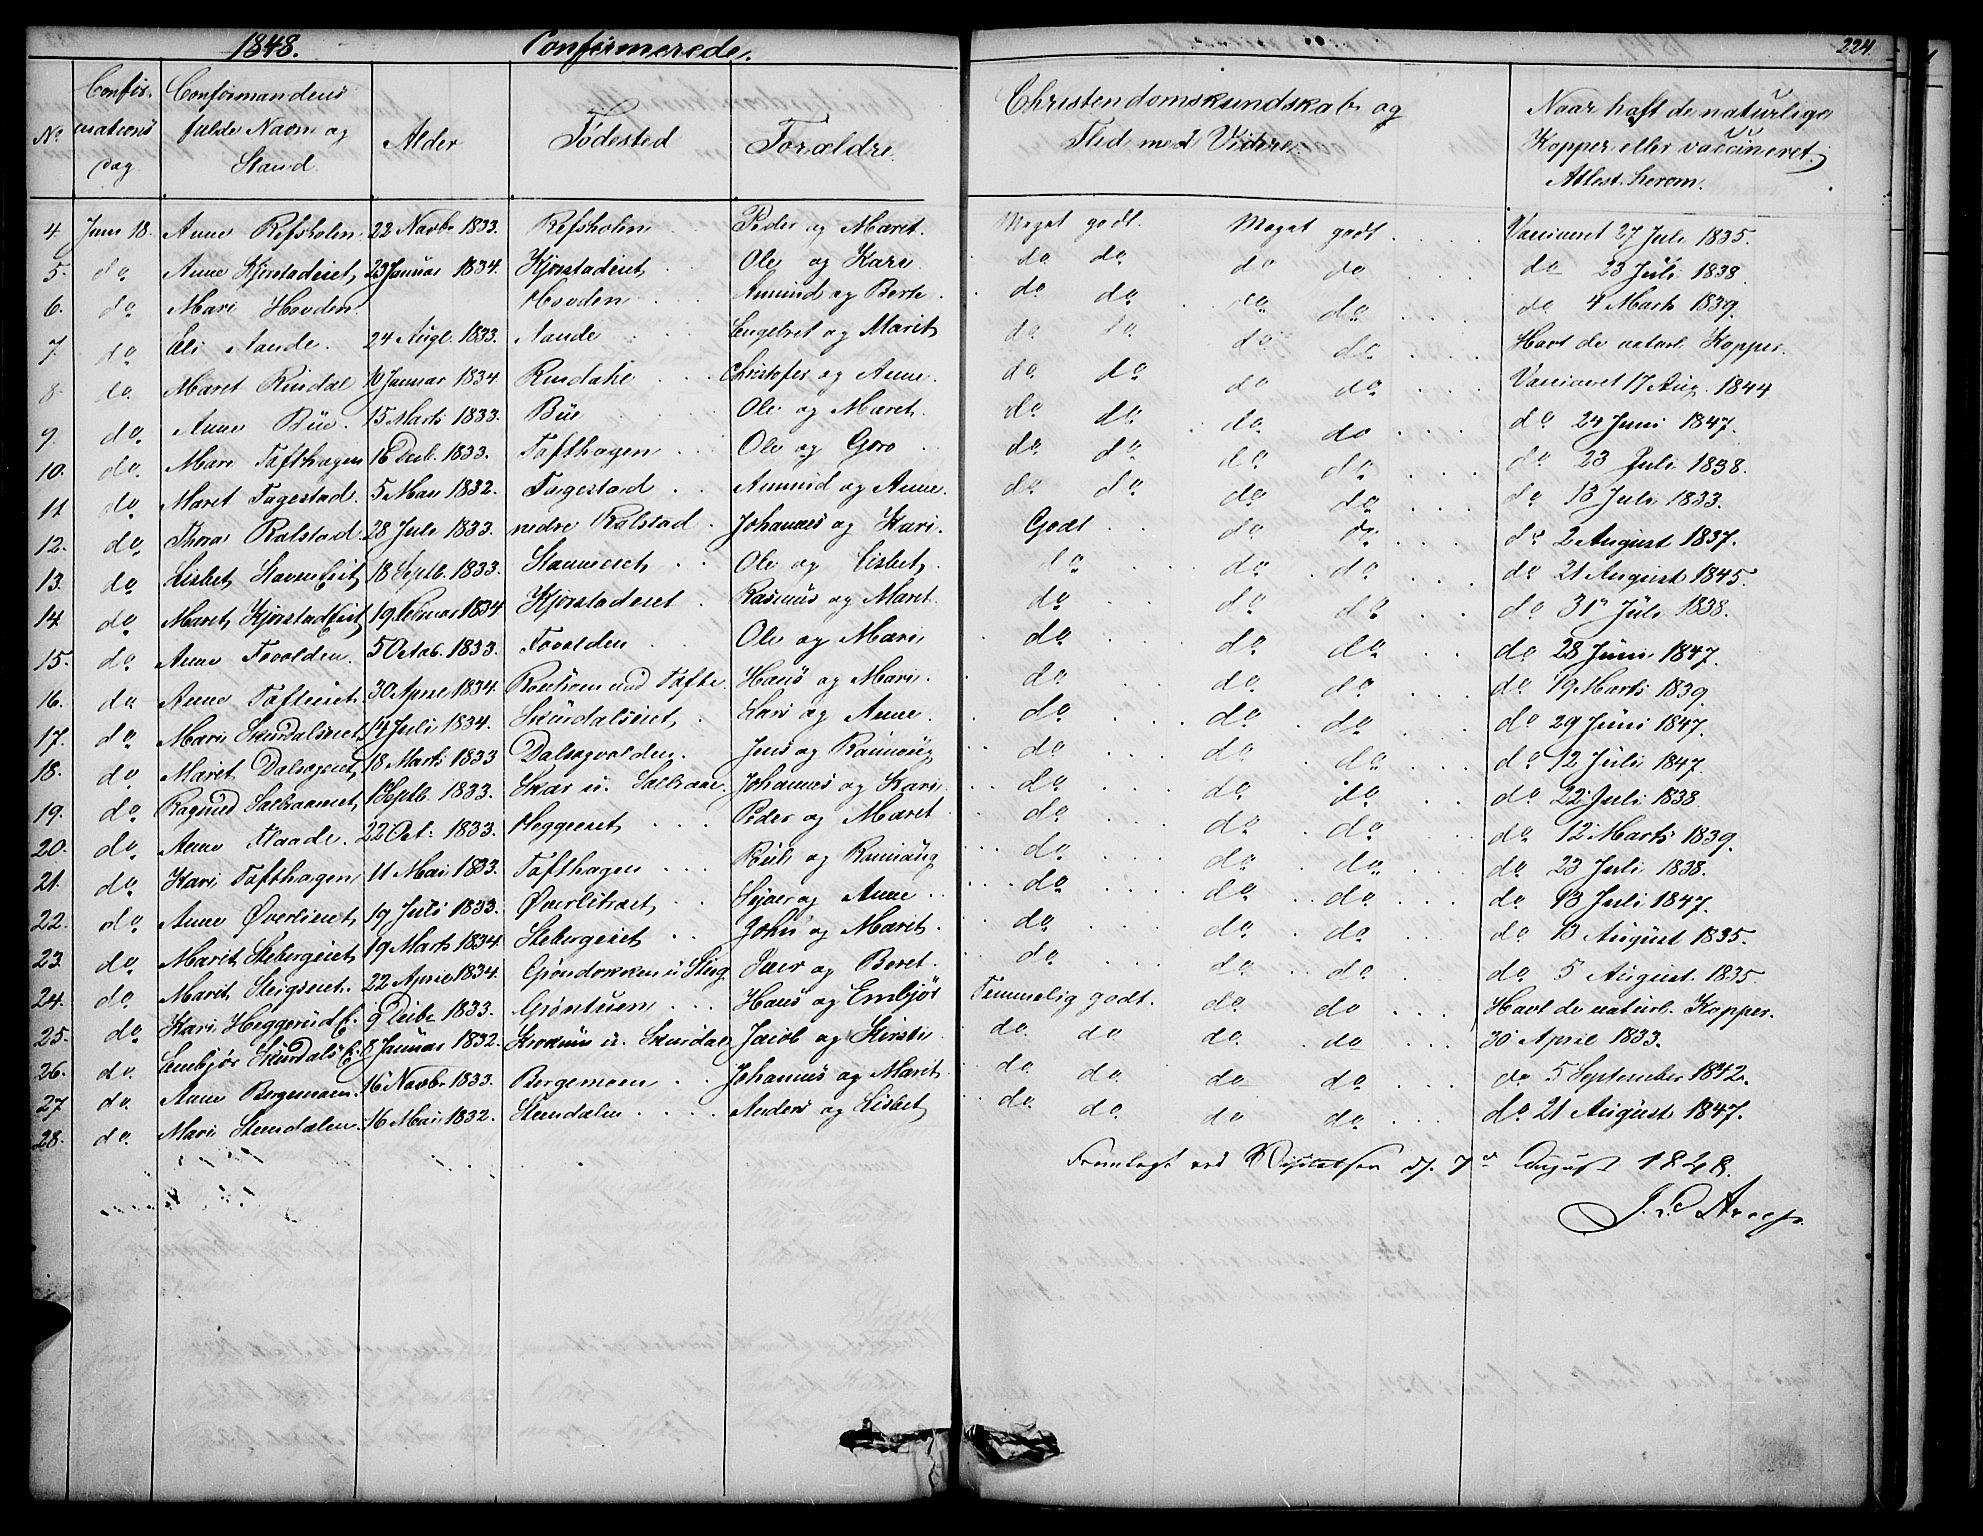 1848. Confirmerede. 224.
No. Confirmations dag Confirmandens fulde Navn og Stand. Alder Fødested Forældre Christendomskundskab og Flid med Videre. Naar haft de naturlige Kopper eller vaccineret. Attest herom.
4 Juni 18. Anne Refsholen 22 Novbr 1833. Refsholen Peder og Marit. Meget godt. Meget godt Vaccineret 27 Juli 1835.
5. do Anne Kjørstadeiet, 23 Januar 1834. Kjørstadeiet Ole og Kari do do do do do 23 Juli 1838.
6. do Mari Hovden. Hovden Amund og Berte. do do do do do 4 Marts 1839.
7. do Eli Aande. 24 Augt. 1833. Aande Engebret og Marit do do do do Havt de naturl. Kopper.
8. do Maret Rindal 10 Januar 1834 Rindahl Christofer og Anne. do do do do Vaccineret 17 Aug. 1844
9. do Anne Büe. 15 Marts 1833. Büe Ole og Maret. do do do do do 24 Juni 1847.
10. do Mari Tofthagen 16 Decb. 1833. Tofthagen Ole og Goro do do do do do 23 Juli 1838.
11. do Maret Fagestad. 5 Mai 1832. Fagestad Amund og Anne. do do do do do 13 Juli 1833.
12. do Thora Ralstad. 28 Juli 1833. nedre Ralstad Johannes og Kari. Godt do do do 2 August 1837.
13. do Lisbet 18 Septb. 1833. Ole og Lisbet. do do do do 21 August 1845.
14. do Maret Kjørstadeiet, 19 Februar 1834 Kjørstadeiet Rasmus og Maret. do do do do 31 Juli 1838.
15. do Anne Fovolden. 5 Octob. 1833. Fovolden Ole og Mari do do do do 28 Juni 1847.
16. do Anne Tofteeiet. 30 April 1834. und Tofte. Hans og Mari. do do do do 19 Marts 1839.
17. do Mari Skurdalseiet, 14 Juli 1834. Skurdalseiet, Lars og Anne. do do do do 29 Juni 1847.
18. do Maret Dalsegeiet, 18 Marts 1833 Dalsegvolden. Jens og Rannoug do do do do 12 Juli 1847.
19. do Ragnild 1 Septb. 1833. Johannes og Kari. do do do do 22 Juli 1838.
20. do Anne Flaade. 22 Oct. 1833. Heggeeiet Peder og Maret do do do do 12 Marts 1839.
21. do Kari Tofthagen 11 Mai 1833. Tofthagen og Rannoug do do do do 23 Juli 1838.
22. do Anne Øverlieiet, 19 Juli 1833. og Anne do do do do 13 Juli 1847.
23. do Marit Stebergeiet 19 Marts 1834. Stebergeiet John og Marit. do do do do 13 August 1835.
24. do Marit Steigseiet. 22 April 1834. Iver og Beret. do do do do 5 August. 1835
25. do Kari Heggerud E. 9 Decbr 1833. Grøntuen Hans og Embjør Temmelig godt. do do Havt de naturl. Kopper.
26. do Embjør Skurdals E. 8 Januar 1832. u. Skurdal Jacob og Kirsti do do do do 30 April 1833.
27 do Anne Bergemoen. 16 Novbr 1833. Bergemoen Johannes og Marit do do do do do 5 September 1842.
28. do Mari Stendalen. 16 Mai 1832. Stendalen Anders og Lisbet do do do do do 21 August 1847.
Fremlagt ved Visitatsen d. 7de August 1848.
J. v. d. Arup